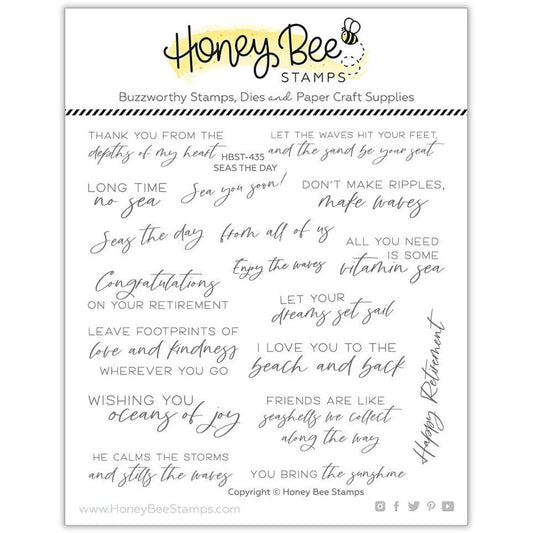 Honey Bee
STAMPS
Buzzworthy Stamps, Dies and Paper Craft Supplies
THANK YOU FROM THE
depths of my heart
HBST-435
SEAS THE DAY
LET THE WAVES HIT YOUR FEET,
and the sand be your seat
LONG TIME
no sea
Sea you soon!
DON'T MAKE RIPPLES,
make waves
Seas the day
from all of us
ALL YOU NEED
IS SOME
vitamin sea
Enjoy the waves
Congratulations
ON YOUR RETIREMENT
LET YOUR
dreams set sail
LEAVE FOOTPRINTS OF
love and kindness
WHEREVER YOU GO
I LOVE YOU TO THE
beach and back
Happy Retirement
WISHING YOU
oceans of joy
FRIENDS ARE LIKE
seashells we collect
along the way
HE CALMS THE STORMS
and stills the waves
YOU BRING the sunshine
Copyright © Honey Bee Stamps
www.HoneyBeeStamps.com